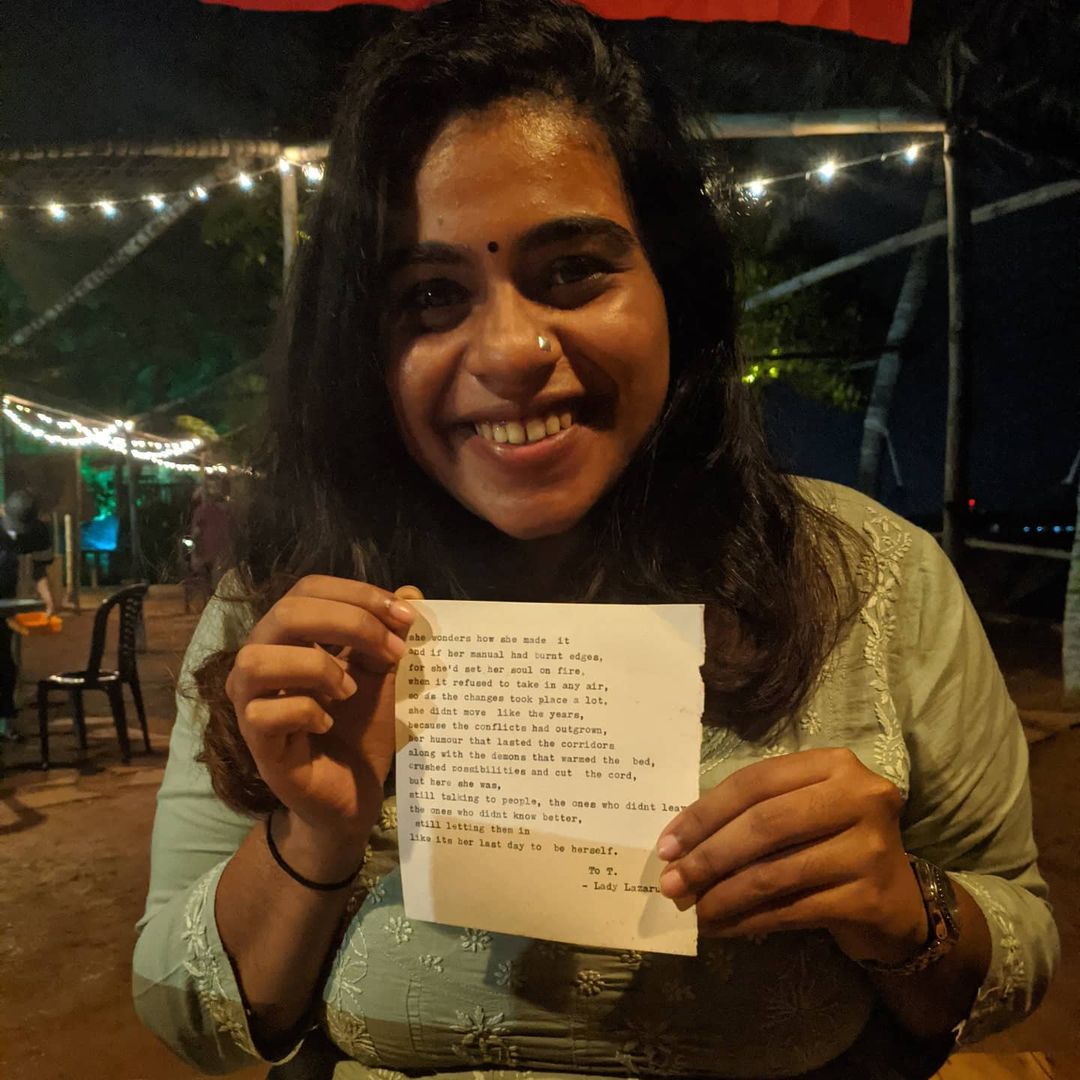 she wonders how she made it
and if her manual had burnt edges,
for she'd set her soul on fire,
when it refused to take in any air,
so as the changes took place a lot,
she didnt move like the years,
because the conflicts had outgrown,
her humour that lasted the corridors
along with the demons that warmed the bed,
crushed possibilities and cut the cord,
but here she was,
still talking to people, the ones who didnt leav
the ones who didnt know better,
still letting them in
like its her last day to be herself.
To T.
- Lady Lazaru